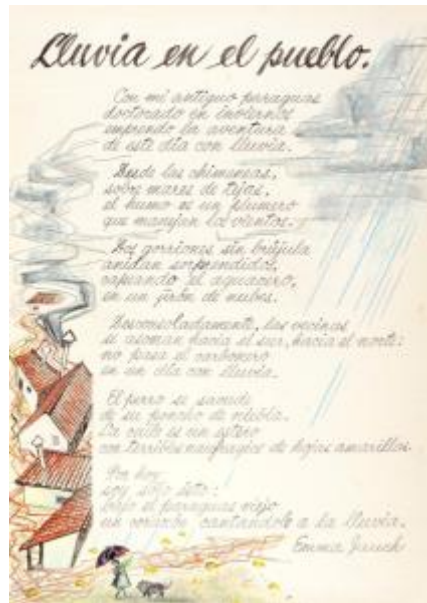 Lluvia en el pueblo.
Con mi antiguo paraguas
doctorado en inviernos
emprendo la aventura
de este día con lluvia.
Desde las chimeneas,
sobre mares de tejas,
el humo es un plumero
que manejan los vientos.
Dos gorriones, sin brújula
anidan sorprendidos,
capeando el aguacero,
en un jirón de nubes.
Desconsoladamente, las vecinas
se asoman hacia el sur, hacia el norte:
no pasa el carbonero
en un día con lluvia.
El perro se sacude
de su poncho de niebla.
La calle es un estero
con terribles naufragios de hojas amarillas.
Por hoy
soy sólo ésto:
bajo el paraguas viejo
un corazón cantándole a la lluvia.
Emma Jauch